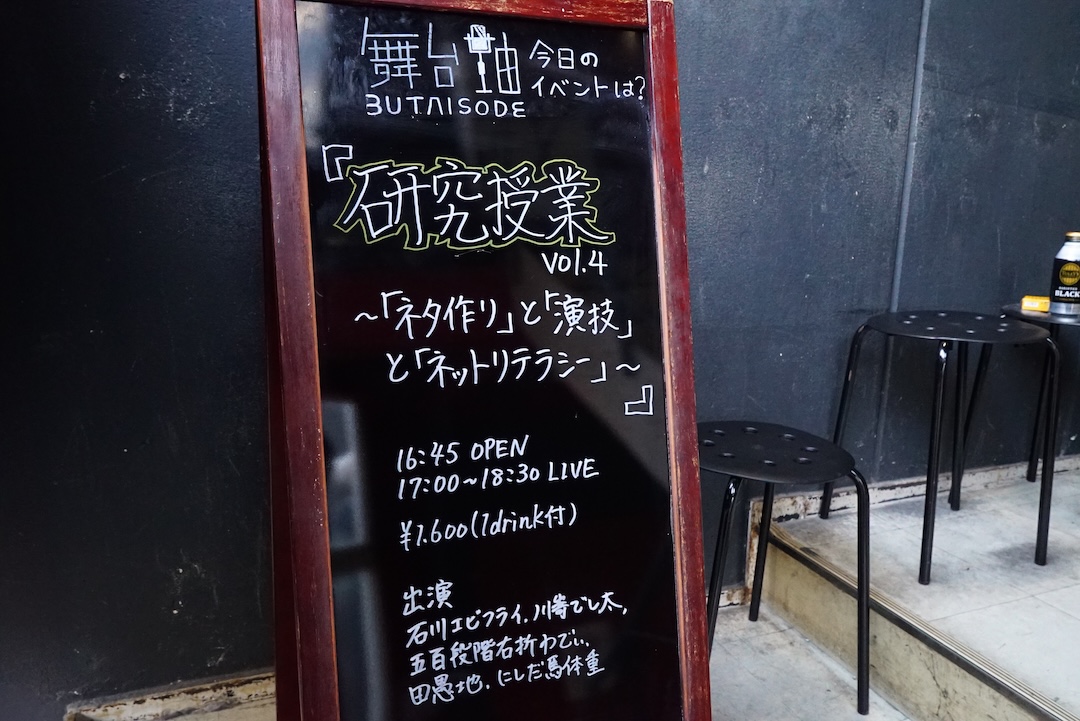 舞台袖
BUTAISODE
今日の
イベントは?
『研究授業
vol.4
～「ネタ作り」と「演技」
と「ネットリテラシー」～
』
16:45 OPEN
17:00～18:30 LIVE
¥1.600(1drink付)
出演
石川エビフライ、川嵜でし太、
五百段階右折わでぃ、
田愚地、にしだ馬体重
BLACK